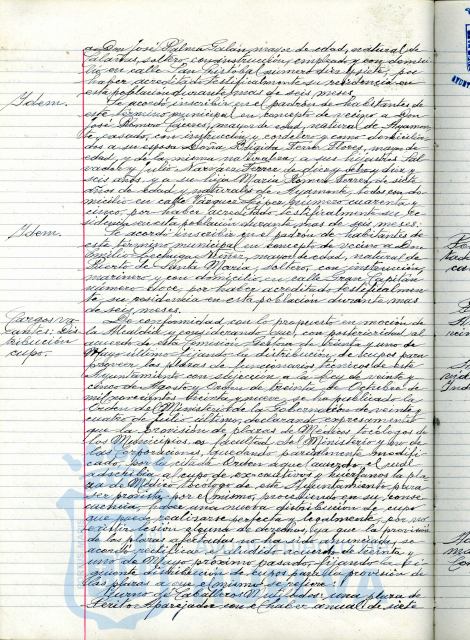 a Don José Palma Galán, mayor de edad, natural de
soltero, con instrucción, empleado y con domici-
lio en calle San Cristobal número diez y siete, por
haber acreditado testificalmente su residencia en
esta población durante mas de seis meses.
Idem.
Se acordó inscribir en el padrón de habitantes de
este término municipal en concepto de vecino a Don
José Romero Cáceres, mayor de edad, natural de Ayamon-
te, casado, con instrucción, y como domicilia-
dos a su esposa Doña Brígida Ferrer Flores, mayor de
edad, y de la misma naturaleza, a sus hijastros Sal-
vador y Julio Narváez Ferrer de diez y ocho y diez y
seis años, y a su hija María Romero Ferrer, de
años de edad y naturales de Ayamonte, todos con do-
micilio en calle Vázquez López número cuarenta y
cinco, por haber acreditado testificalmente su re-
sidencia en esta población durante mas de seis meses.
Idem.
Se acordó inscribir en el padrón de habitantes de
este término municipal en concepto de vecino a Don
Emilio Lechuga Núñez, mayor de edad, natural de
Puerto de Santa María, soltero, con instrucción,
marinero, y con domicilio en calle Gran Capitán
número doce, por haber acreditado testificalmen-
te su residencia en esta población durante mas
de seis meses.
Cargos va-
cantes: dis-
tribución
cupo.
De conformidad con lo propuesto en moción de
la Alcaldía, y considerando: Que con posterioridad al
acuerdo de esta Comisión Gestora de treinta y uno de
Mayo último fijando la distribución de cupos para
proveer las plazas de funcionarios técnicos de este
Ayuntamiento con sujeción a la Ley de veinte y
cinco de Agosto y Orden de treinta de Octubre de
mil novecientos treinta y nueve, se ha publicado la
Orden del Ministerio de la Gobernación de veinte y
cuatro de Julio último, declarando expresamente
que la provisión de plazas de Médicos tocólogos de
los Municipios es facultad del Ministerio y no de
las Corporaciones, quedando parcialmente modifi-
cado por la citada Orden aquel acuerdo, el cual
distribuía al cupo de ex-cautivos y huérfanos la pla-
za de Médico tocólogo de este Ayuntamiento para
ser provista por el mismo, procediendo en su conse-
cuencia, hacer una nueva distribución de cupo
que puede realizarse perfecta y legalmente, por no
existir lesión alguna al derecho, ya que la provisión
de las plazas afectadas no ha sido anunciada, se
acordó rectificar el aludido acuerdo de treinta y
uno de Mayo próximo pasado, fijando la si-
guiente distribución de cupos para la provisión de
las plazas a que el mismo se refiere:
Turno de Caballeros Mutilados: una plaza de
Perito Aparejador con el haber anual de siete